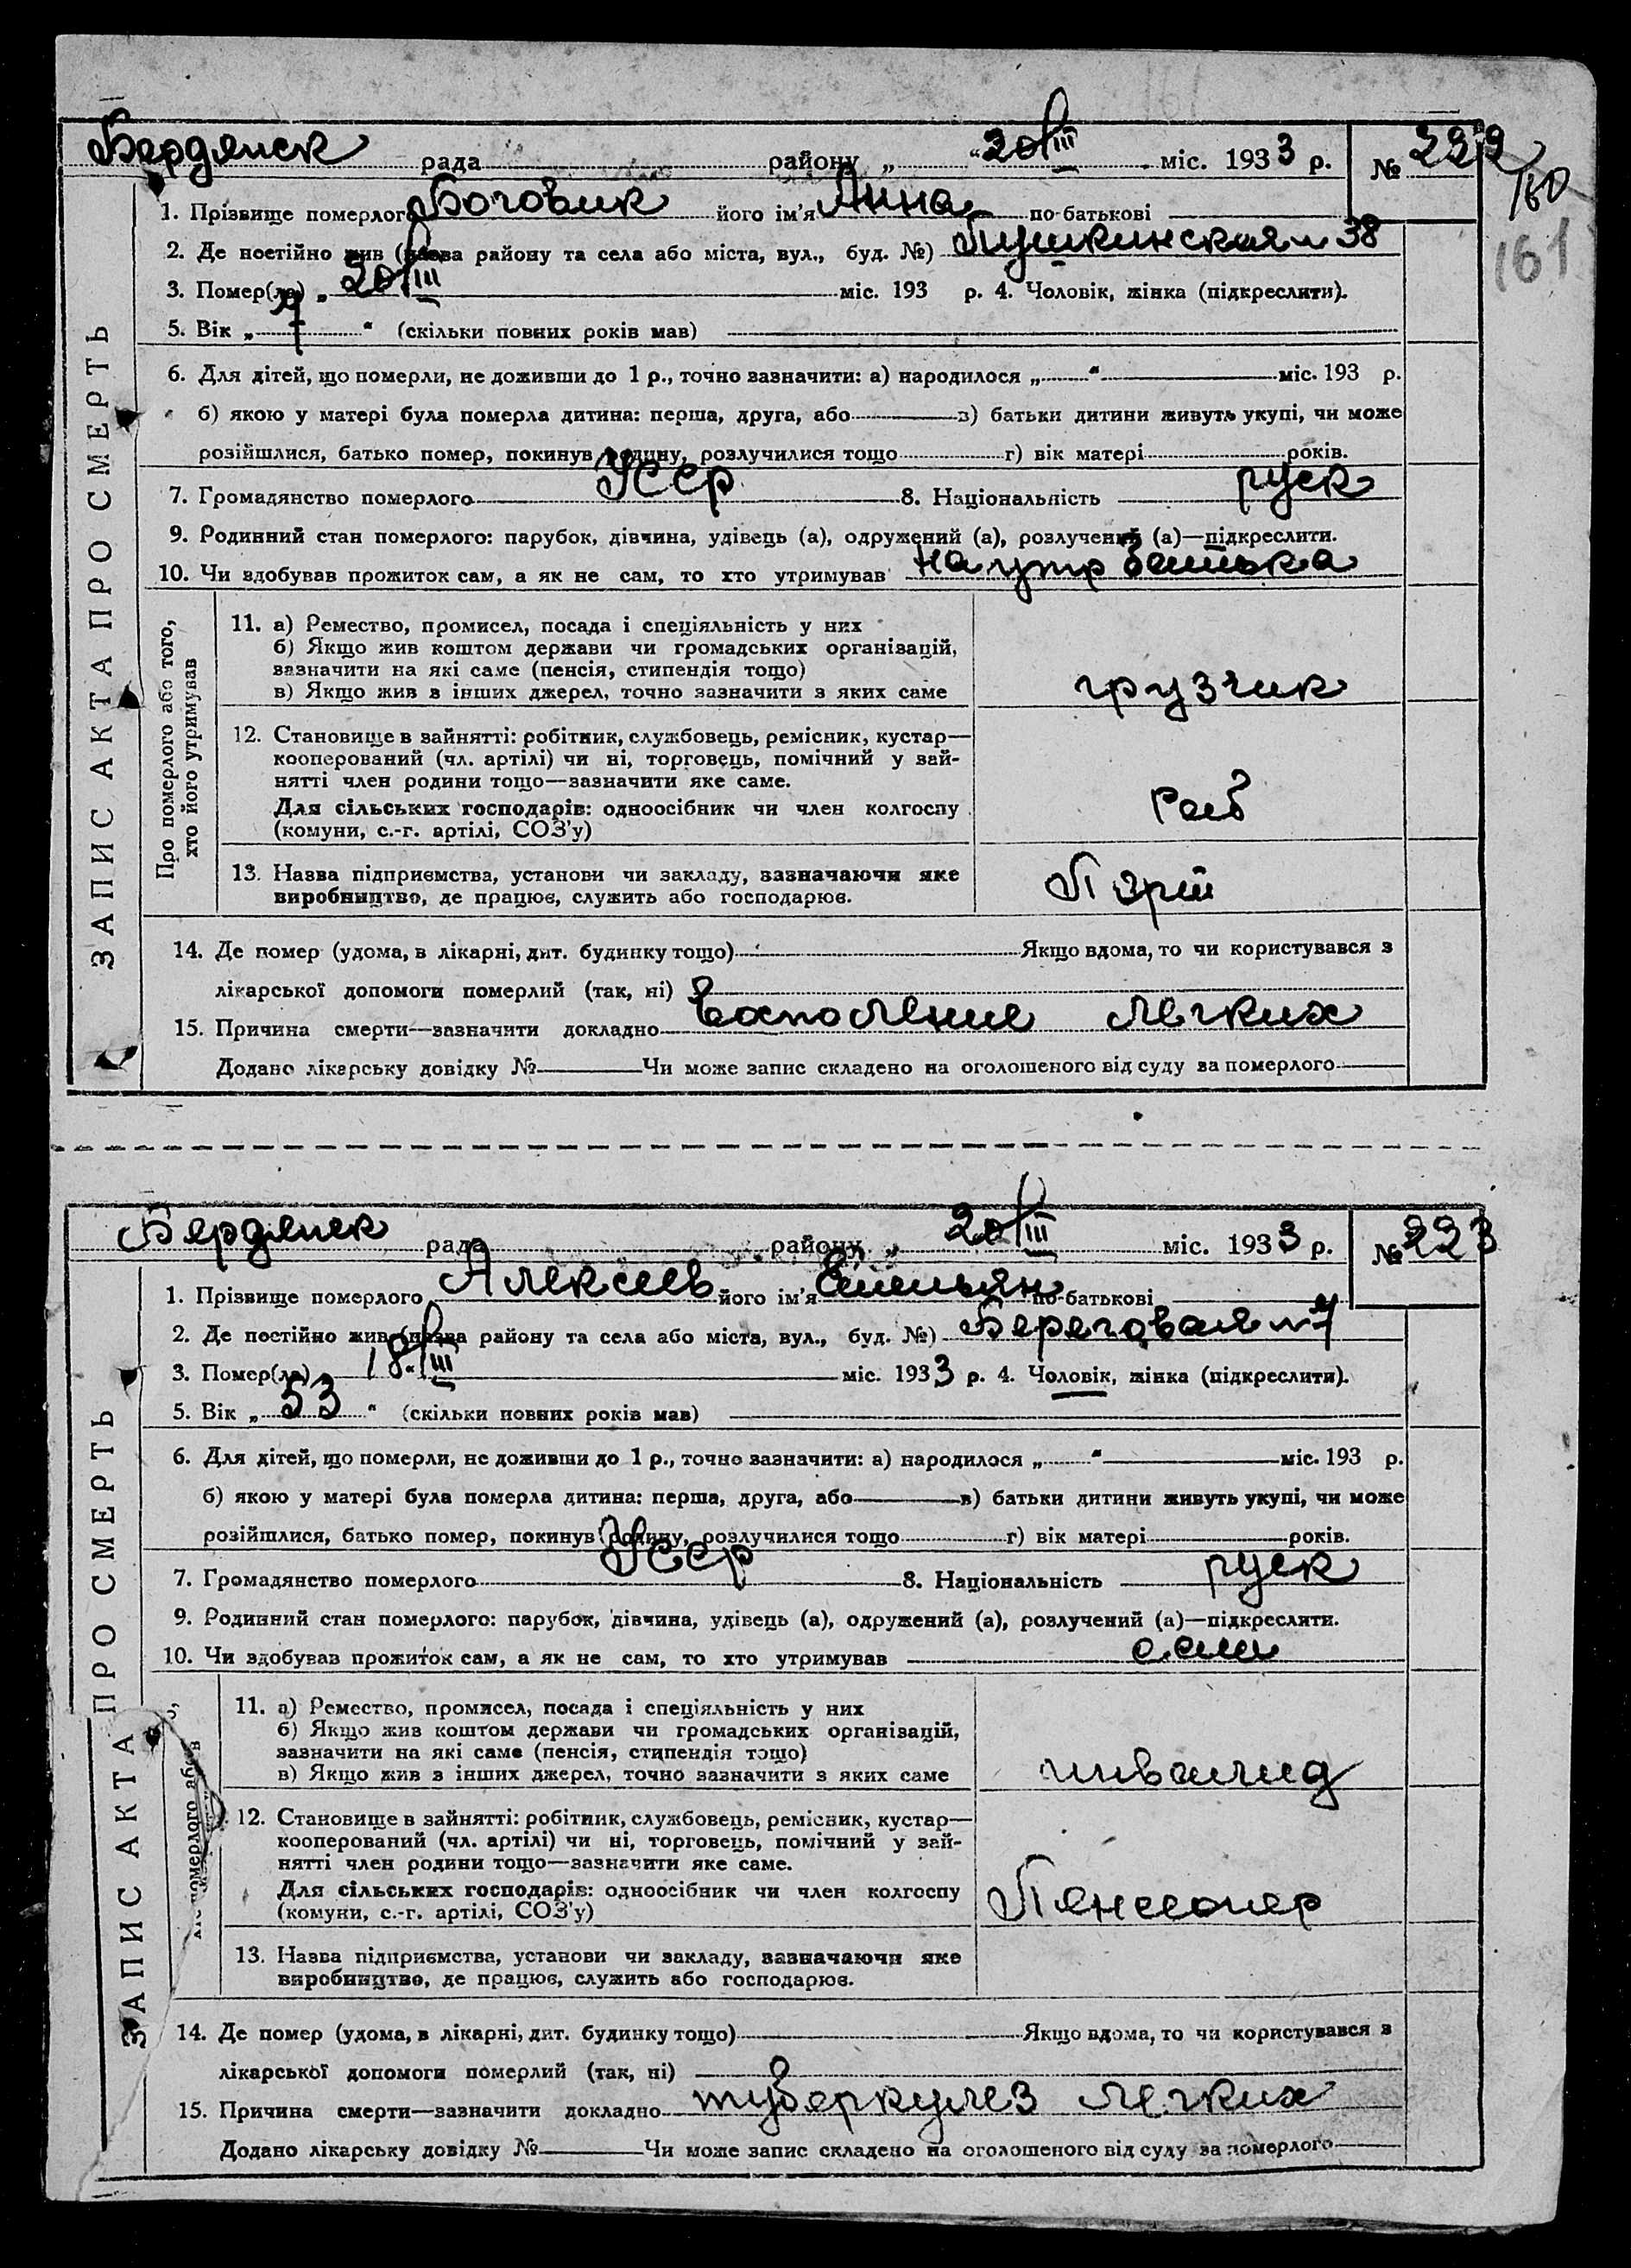 Бердянск рада району „ “ 20/III міс. 1933 р. № 222
160
161
1. Прізвище померлого Боговик його ім'я Анна по-батькові
2. Де постійно жив (назва району та села або міста, вул., буд. №) Пушкинская 38
3. Помер(ла) „ 20/III міс. 193 р. 4. Чоловік, жінка (підкреслити).
5. Вік „ 7 “ (скільки повних років мав)
6. Для дітей, що померли, не доживши до 1 р., точно зазначити: а) народилося „ “ міс. 193 р.
б) якою у матері була померла дитина: перша, друга, або в) батьки дитини живуть укупі, чи може
розійшлися, батько помер, покинув родину, розлучилися тощо г) вік матері років.
7. Громадянство померлого УССР 8. Національність руск
9. Родинний стан померлого: парубок, дівчина, удівець (а), одружений (а), розлучений (а)—підкреслити.
10. Чи здобував прожиток сам, а як не сам, то хто утримував на утр батька
ЗАПИС АКТА ПРО СМЕРТЬ
Про померлого або того,
хто його утримував
11. а) Ремество, промисел, посада і спеціяльність у них
б) Якщо жив коштом держави чи громадських організацій,
зазначити на які саме (пенсія, стипендія тощо)
в) Якщо жив з інших джерел, точно зазначити з яких саме грузчик
12. Становище в зайнятті: робітник, службовець, ремісник, кустар—
кооперований (чл. артілі) чи ні, торговець, помічний у зай-
нятті член родини тощо—зазначити яке саме.
Для сільських господарів: одноосібник чи член колгоспу
(комуни, с.-г. артілі, СОЗ'у) Раб
13. Назва підприємства, установи чи закладу, зазначаючи яке
виробництво, де працює, служить або господарює. Порт
14. Де помер (удома, в лікарні, дит. будинку тощо) Якщо вдома, то чи користувався з
лікарської допомоги померлий (так, ні)
15. Причина смерти—зазначити докладно восполение легких
Додано лікарську довідку № Чи може запис складено на оголошеного від суду за померлого
Бердянск рада району „ 20/III міс. 1933 р. № 223
1. Прізвище померлого Алексеев його ім'я Емельян по-батькові
2. Де постійно жив (назва району та села або міста, вул., буд. №) Береговая 7
3. Помер(ла) 18/III міс. 1933 р. 4. Чоловік, жінка (підкреслити).
5. Вік „ 53 “ (скільки повних років мав)
6. Для дітей, що померли, не доживши до 1 р., точно зазначити: а) народилося „ “ міс. 193 р.
б) якою у матері була померла дитина: перша, друга, або в) батьки дитини живуть укупі, чи може
розійшлися, батько помер, покинув родину, розлучилися тощо г) вік матері років.
7. Громадянство померлого УССР 8. Національність руск
9. Родинний стан померлого: парубок, дівчина, удівець (а), одружений (а), розлучений (а)—підкреслити.
10. Чи здобував прожиток сам, а як не сам, то хто утримував сам
ЗАПИС АКТА ПРО СМЕРТЬ
11. а) Ремество, промисел, посада і спеціяльність у них
б) Якщо жив коштом держави чи громадських організацій,
зазначити на які саме (пенсія, стипендія тощо)
в) Якщо жив з інших джерел, точно зазначити з яких саме инвалид
12. Становище в зайнятті: робітник, службовець, ремісник, кустар—
кооперований (чл. артілі) чи ні, торговець, помічний у зай-
нятті член родини тощо—зазначити яке саме.
Для сільських господарів: одноосібник чи член колгоспу
(комуни, с.-г. артілі, СОЗ'у) Пенсионер
13. Назва підприємства, установи чи закладу, зазначаючи яке
виробництво, де працює, служить або господарює.
14. Де помер (удома, в лікарні, дит. будинку тощо) Якщо вдома, то чи користувався з
лікарської допомоги померлий (так, ні)
15. Причина смерти—зазначити докладно туберкулез легких
Додано лікарську довідку № Чи може запис складено на оголошеного від суду за померлого